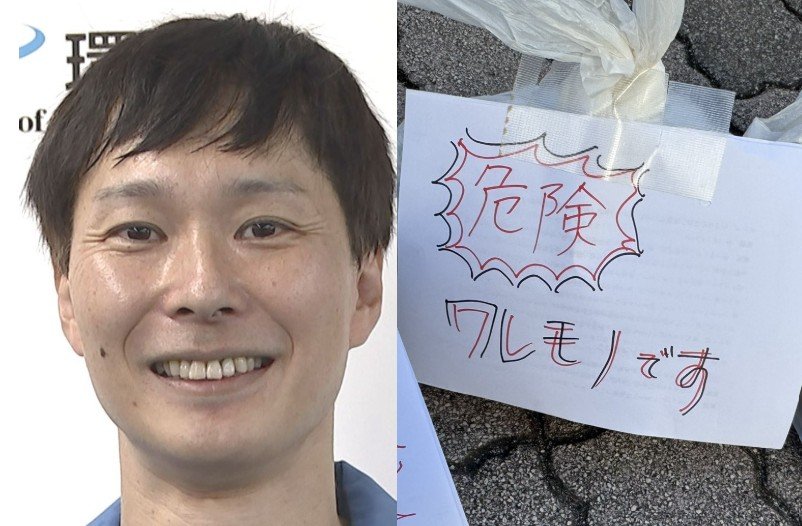 環
of
危険
ワレモノです